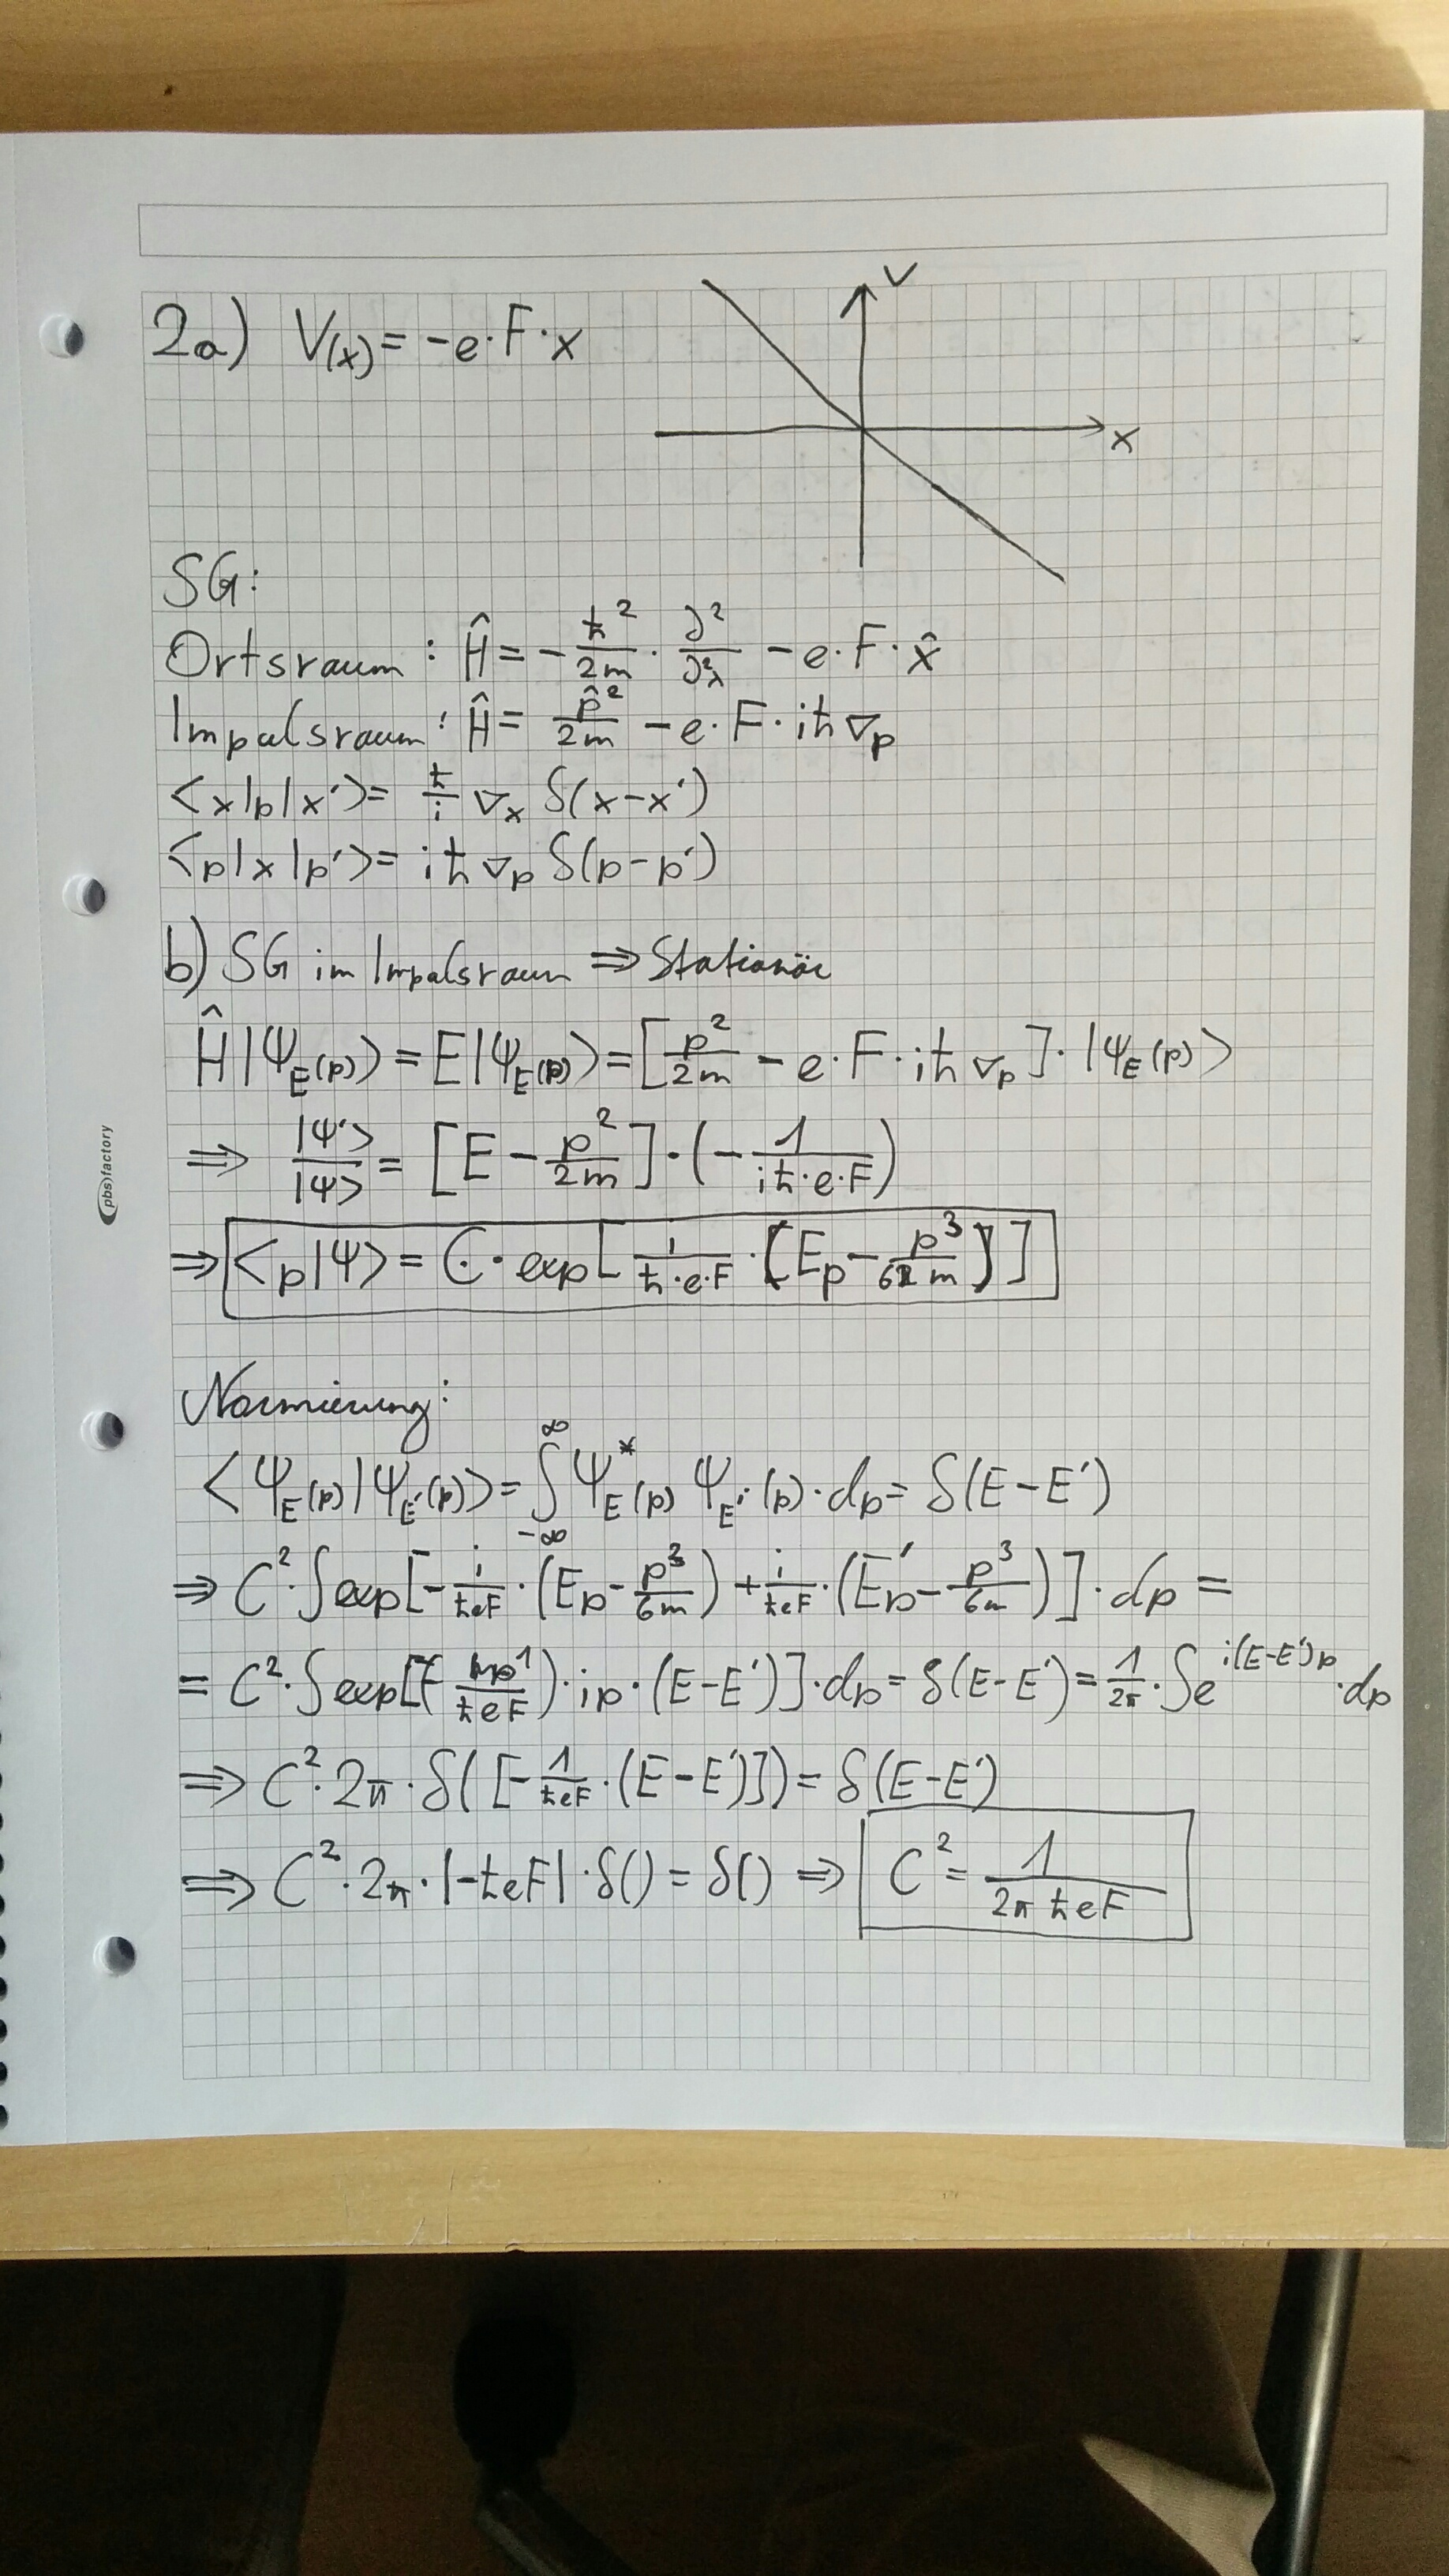 2a) V(x) = -e·F·x
V
x
SG:
Ortsraum: Ĥ = -ħ²/2m · ∂²/∂²x - e·F·x̂
Impulsraum: Ĥ = p̂²/2m - e·F·iħ∇p
<x|p|x'> = ħ/i ∇x δ(x-x')
<p|x|p'> = iħ∇p δ(p-p')
b) SG im Impulsraum ⇒ Stationär
Ĥ|ΨE(p)> = E|ΨE(p)> = [p²/2m - e·F·iħ∇p]·|ΨE(p)>
⇒ |Ψ'>/|Ψ> = [E - p²/2m]·(-1/iħ·e·F)
⇒ <p|Ψ> = C·exp[i/ħ·e·F·(Ep - p³/6m)]
Normierung:
<ΨE(p)|ΨE'(p)> = ∫_{-∞}^{∞} Ψ*E(p) ΨE'(p)·dp = δ(E-E')
⇒ C²·∫exp[-i/ħeF·(Ep - p³/6m) + i/ħeF·(E'p - p³/6m)]·dp =
= C²·∫exp[(-1/ħeF)·ip·(E-E')]·dp = δ(E-E') = 1/2π·∫e^{i(E-E')p}·dp
⇒ C²·2π·δ([-1/ħeF·(E-E')]) = δ(E-E')
⇒ C²·2π·|-ħeF|·δ() = δ() ⇒ C² = 1/2πħeF
(pbs)factory